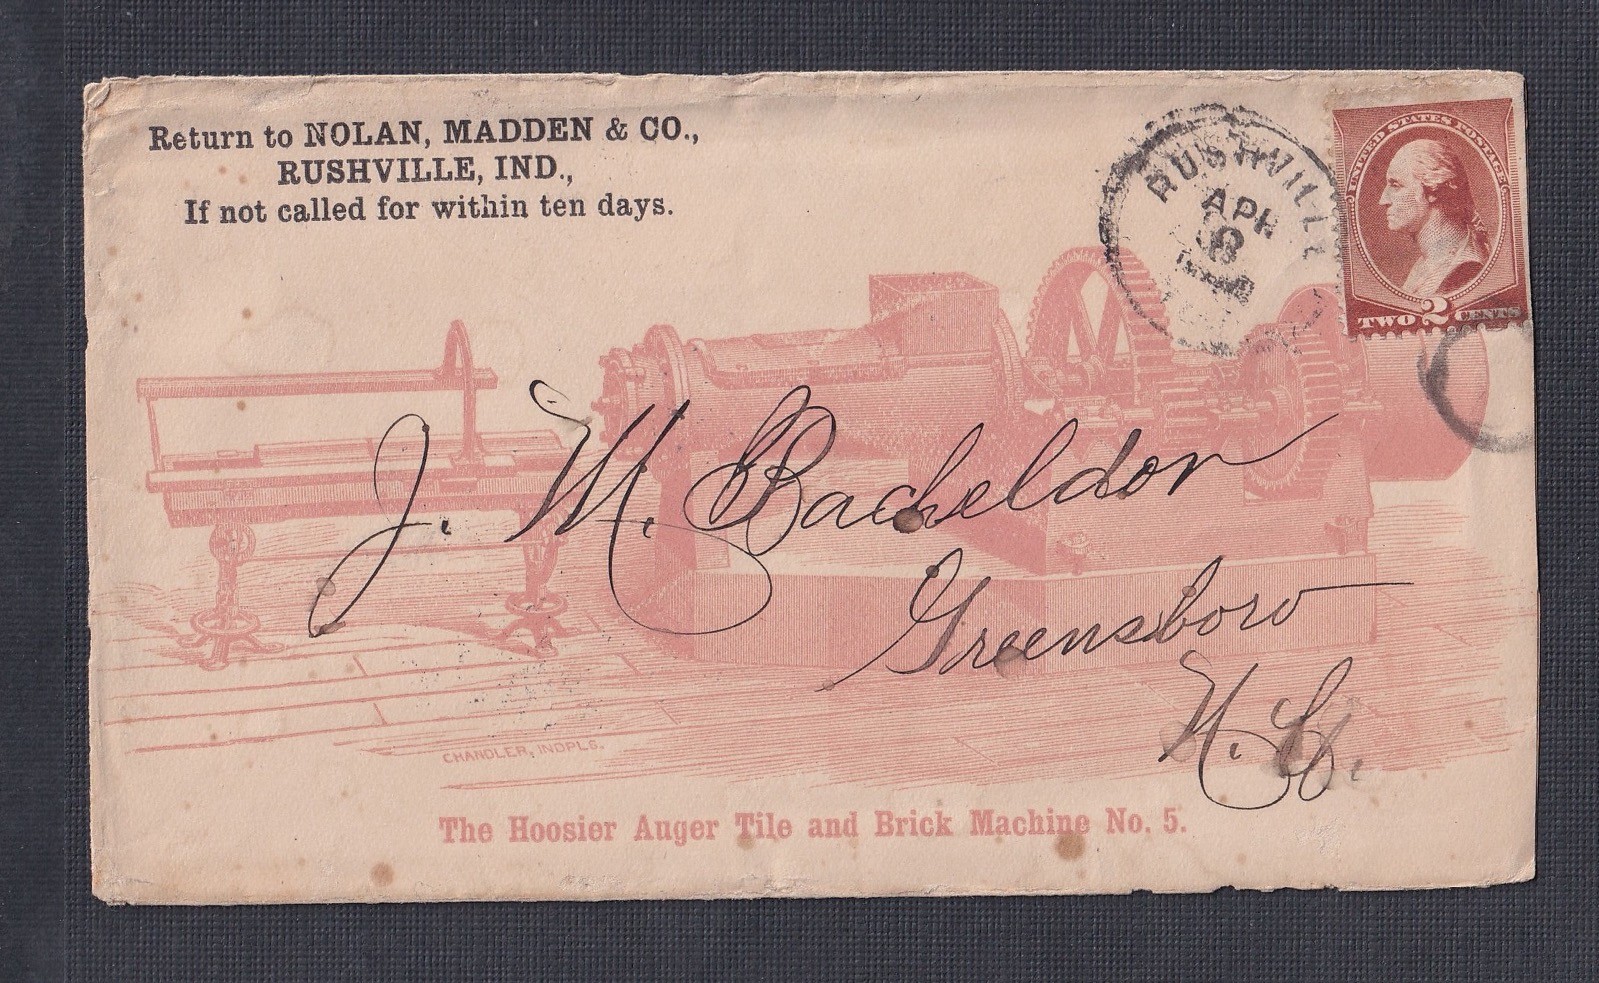 Return to NOLAN, MADDEN & CO.,
RUSHVILLE, IND.,
If not called for within ten days.
RUSHVILLE
APR
8
IND
UNITED STATES POSTAGE
TWO 2 CENTS
J. M. Bacheldor
Greensboro
N. C.
CHANDLER, INDPLS.
The Hoosier Auger Tile and Brick Machine No. 5.